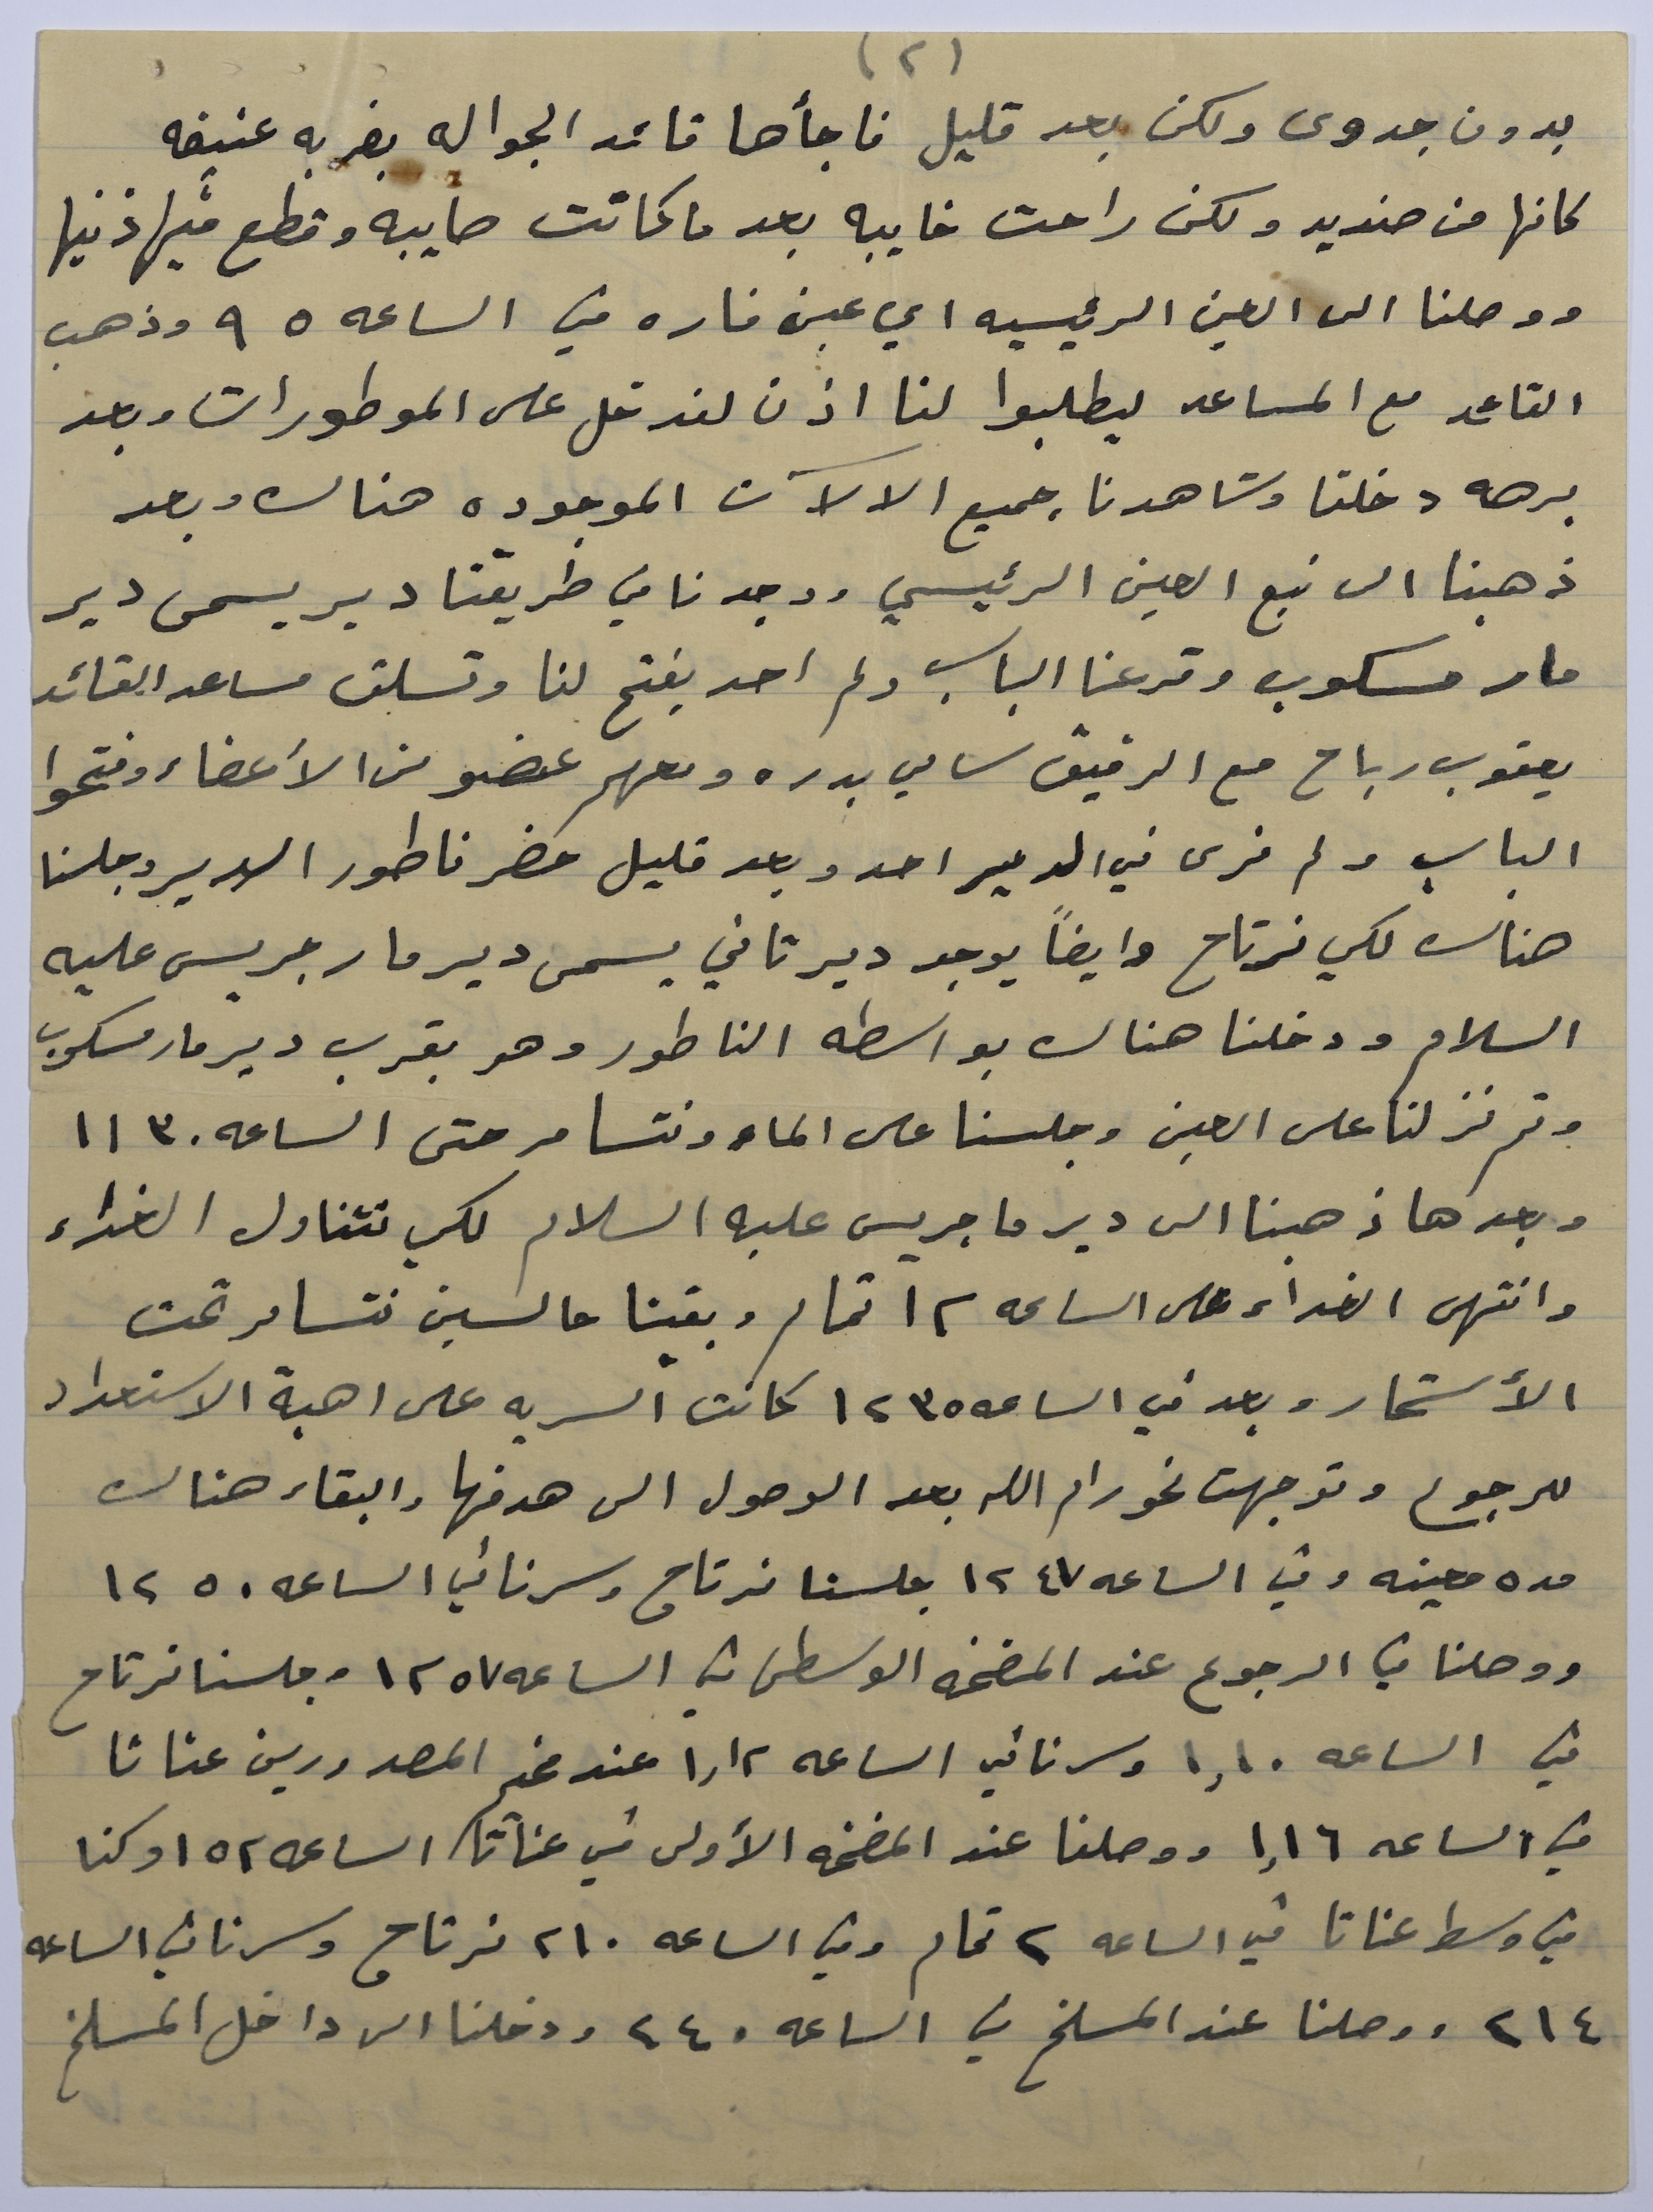 (٢)
بدون جدوى ولكن بعد قليل فاجأها قائد الجواله بضربه عنيفه
كانها من صنديد ولكن راحت خايبه بعد ما كانت صايبه وقطع منها ذنيها
ووصلنا الى العين الرئيسيه اي عين فاره في الساعه ٥ ٩ وذهب
القائد مع المساعد ليطلبوا لنا اذن لندخل على الموطورات وبعد
برهه دخلنا وشاهدنا جميع الالآت الموجوده هناك وبعد
ذهبنا الى نبع العين الرئيسي ووجدنا في طريقنا دير يسمى دير
مار مسكوب وقرعنا الباب ولم احد يفتح لنا وتسلق مساعد القائد
يعقوب رباح مع الرفيق سامي بدره ومعهم عضو من الأعضاء وفتحوا
الباب ولم نرى في الدير احد وبعد قليل حضر ناطور الدير وجلسنا
هناك لكي نرتاح وايضاً يوجد دير ثاني يسمى دير مار جريس عليه
السلام ودخلنا هناك بواسطه الناطور وهو بقرب دير مار مسكوب
وثم نزلنا على العين وجلسنا على الماء ونتسامر حتى الساعه ٣٠ ١١
وبعدها ذهبنا الى دير ما جريس عليه السلام لكي نتناول الغذاء
وانتهى الغداء على الساعه ١٢ تمام وبقينا جالسين نتسامر تحت
الأشجار وبعد في الساعه ٣٥ ١٢ كانت السريه على اهبة الاستعداد
للرجوع وتوجهت نحو رام الله بعد الوصول الى هدفها والبقاء هناك
مده معينه وفي الساعه ٤٧ ١٢ جلسنا نرتاح وسرنا في الساعه ٥٠ ١٢
ووصلنا في الرجوع عند المضخه الوسطى في الساعه ٥٧ ١٢ وجلسنا نرتاح
في الساعه ١,١٠ وسرنا في الساعه ١,١٢ عند مخيم المصدورين عناتا
في الساعه ١,١٦ ووصلنا عند المضخه الأولى في عناتا الساعه ٥٢ ١ وكنا
في وسط عناتا في الساعه ٢ تمام وفي الساعه ١٠ ٢ نرتاح وسرنا في الساعه
١٤ ٢ ووصلنا عند المسلخ في الساعه ٤٠ ٢ ودخلنا الى داخل المسلخ